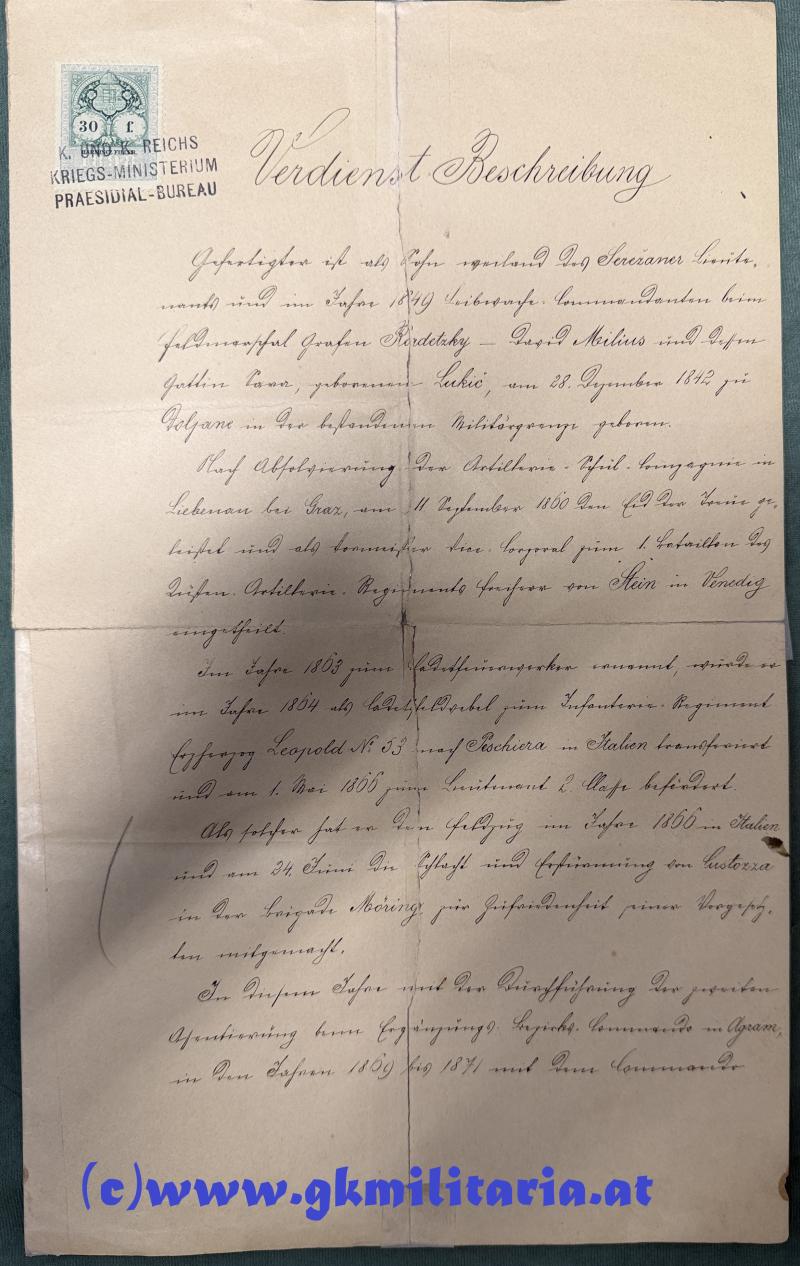 30 f.
K. UND K. REICHS
KRIEGS-MINISTERIUM
PRAESIDIAL-BUREAU
Verdienst Beschreibung
Gefertigter ist als Sohn weiland des Serežaner Lieute-
nants und im Jahre 1849 Leibwache-Commandanten beim
Feldmarschal Grafen Radetzky – David Milius und dessen
Gattin Sava, geborenen Lukić, am 28. Dezember 1842 zu
Doljane in der bestandenen Militärgrenze geboren.
Nach Absolvierung der Artillerie-Schul-Compagnie in
Liebenau bei Graz, am 11 September 1860 den Eid der Treue ge-
leistet und als Vice-Corporal zum 1. Bataillon des
Küsten-Artillerie-Regiments Freiherr von Stein in Venedig
eingetheilt.
Im Jahre 1863 zum Cadetfeuerwerker ernannt, wurde er
im Jahre 1864 als Cadetfeldwebel zum Infanterie-Regiment
Erzherzog Leopold No 53 nach Peschiera in Italien transferiert
und am 1. Mai 1866 zum Lieutenant 2. Classe befördert.
Als solcher hat er den Feldzug im Jahre 1866 in Italien
und am 24. Juni die Schlacht und Erstürmung von Custozza
in der Brigade Möring zur Zufriedenheit seiner Vorgesetz-
ten mitgemacht.
In diesem Jahre mit der Durchführung der zweiten
Asentierung beim Ergänzungs-Bezirks-Commando in Agram,
in den Jahren 1869 bis 1871 mit dem Commando
(c)www.gkmilitaria.at